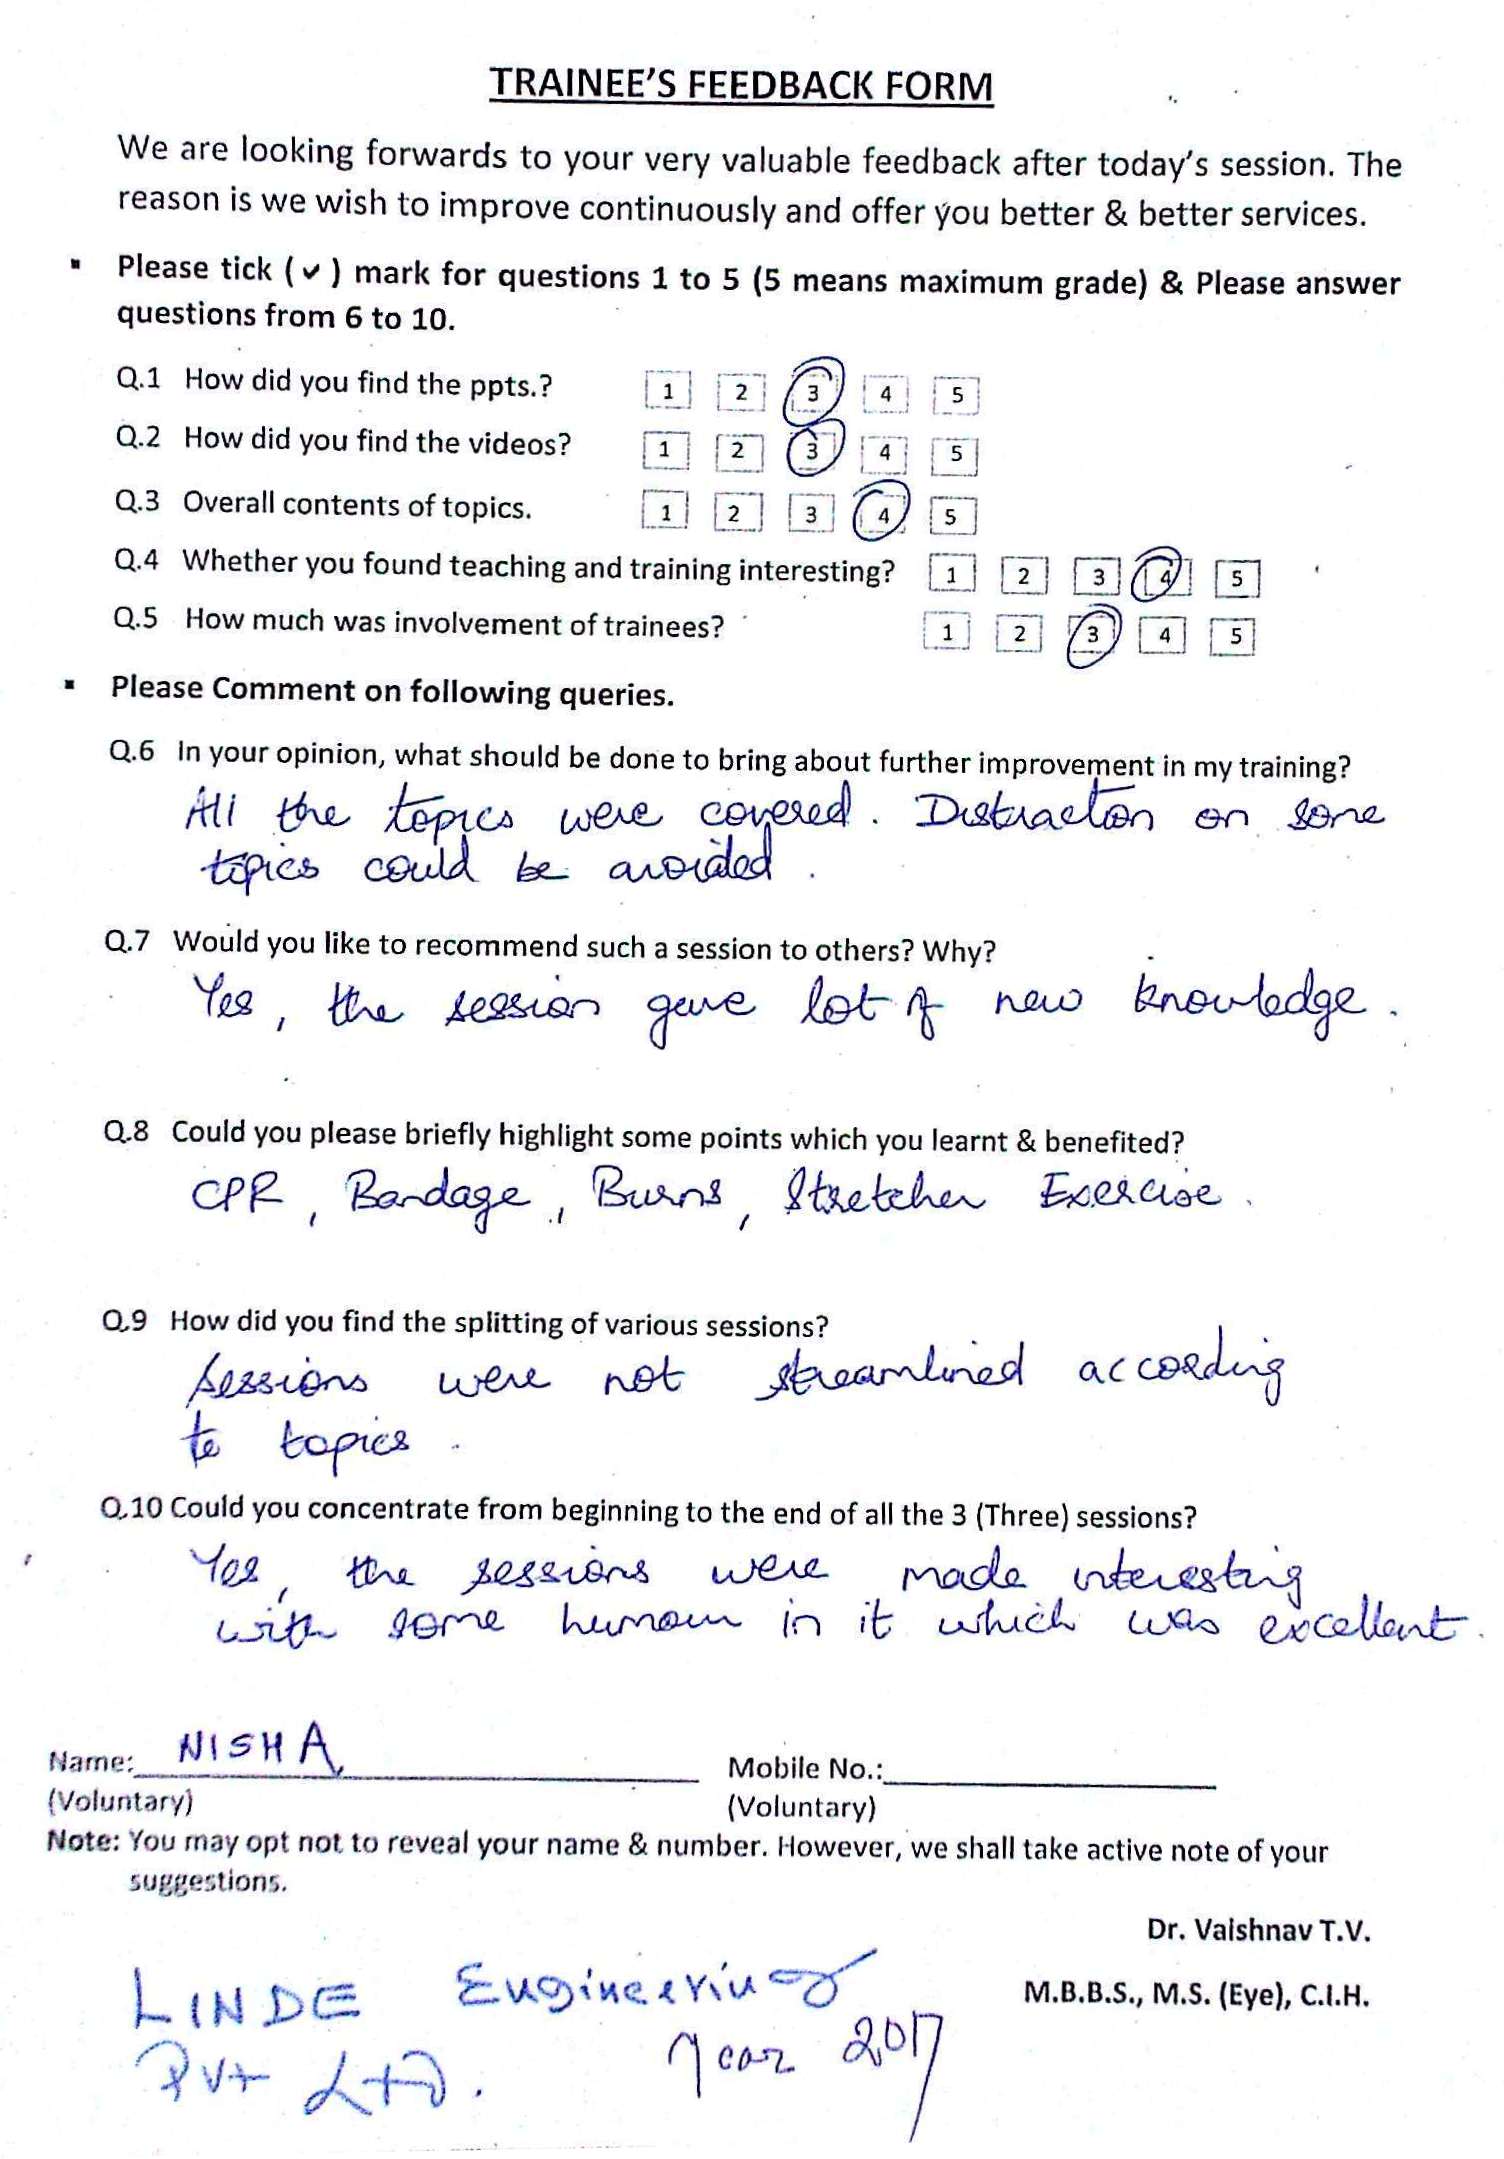 TRAINEE'S FEEDBACK FORM
We are looking forwards to your very valuable feedback after today's session. The
reason is we wish to improve continuously and offer you better & better services.
▪ Please tick (✔) mark for questions 1 to 5 (5 means maximum grade) & Please answer
questions from 6 to 10.
Q.1 How did you find the ppts.? 1 2 3 4 5
Q.2 How did you find the videos? 1 2 3 4 5
Q.3 Overall contents of topics. 1 2 3 4 5
Q.4 Whether you found teaching and training interesting? 1 2 3 4 5
Q.5 How much was involvement of trainees? 1 2 3 4 5
▪ Please Comment on following queries.
Q.6 In your opinion, what should be done to bring about further improvement in my training?
All the topics were covered. Distraction on some
topics could be avoided.
Q.7 Would you like to recommend such a session to others? Why?
Yes, the session gave lot of new knowledge.
Q.8 Could you please briefly highlight some points which you learnt & benefited?
CPR, Bandage, Burns, Stretcher Exercise.
Q.9 How did you find the splitting of various sessions?
Sessions were not streamlined according
to topics.
Q.10 Could you concentrate from beginning to the end of all the 3 (Three) sessions?
Yes, the sessions were made interesting
with some humour in it which was excellent.
Name: NISHA Mobile No.:
(Voluntary) (Voluntary)
Note: You may opt not to reveal your name & number. However, we shall take active note of your
suggestions.
Dr. Vaishnav T.V.
M.B.B.S., M.S. (Eye), C.I.H.
LINDE Engineering
Pvt Ltd. Year 2017